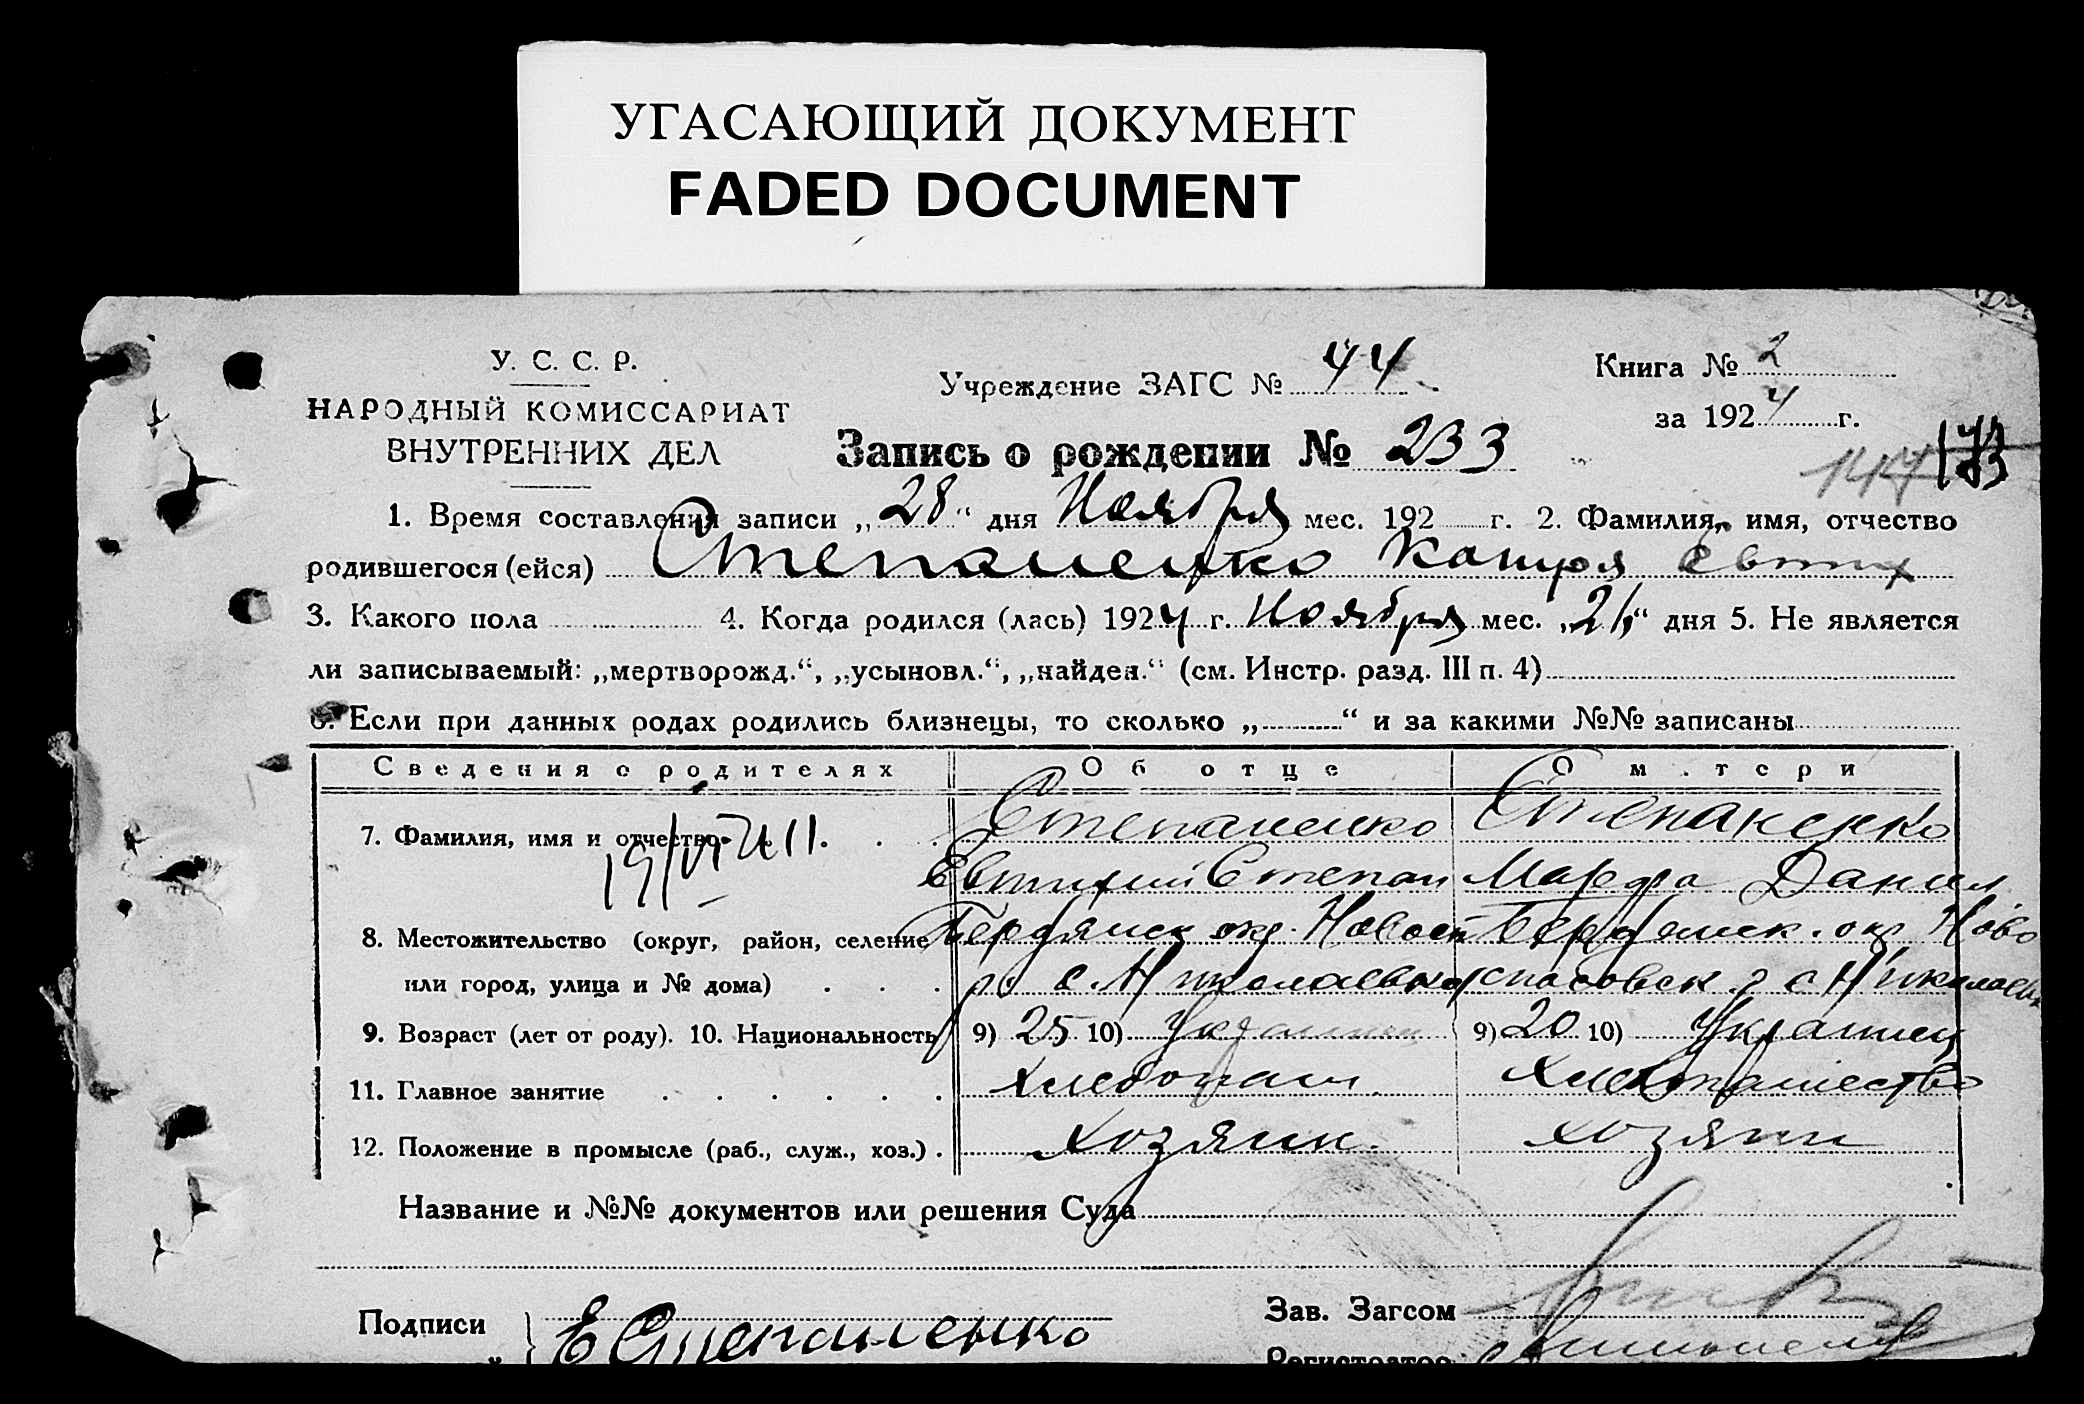 УГАСАЮЩИЙ ДОКУМЕНТ
FADED DOCUMENT
У. С. С. Р.
НАРОДНЫЙ КОМИССАРИАТ
ВНУТРЕННИХ ДЕЛ
Учреждение ЗАГС № 44
Книга № 2
за 1924 г.
Запись о рождении № 233
147 173
1. Время составления записи „28“ дня Ноября мес. 192 г. 2. Фамилия, имя, отчество
родившегося (ейся) Степаненко Евтих
3. Какого пола 4. Когда родился (лась) 1924 г. Ноября мес. дня 5. Не является
ли записываемый: „мертворожд.“, „усыновл.“, „найден.“ (см. Инстр. разд. III п. 4)
6. Если при данных родах родились близнецы, то сколько „ “ и за какими №№ записаны
Сведения о родителях Об отце О матери
7. Фамилия, имя и отчество Степаненко Степаненко
Евтихий Степан Марфа Данил
8. Местожительство (округ, район, селение Бердянск окр. Новосп Бердянск. окр Ново
или город, улица и № дома) р. с. Николаевка спасовск. р с Николаевк
9. Возраст (лет от роду). 10. Национальность 9) 25 10) 9) 20 10) Украинец
11. Главное занятие Хлебопаш Хлебопашество
12. Положение в промысле (раб., служ., хоз.) Хозяин Хозяин
Название и №№ документов или решения Суда
Подписи Е Степаненко
Зав. Загсом
Регистратор